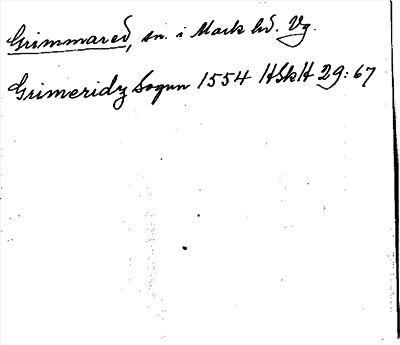 Grimmared, sn. i Mark hd. Vg.
Grimeridz Sogun 1554 HSkH 29:67